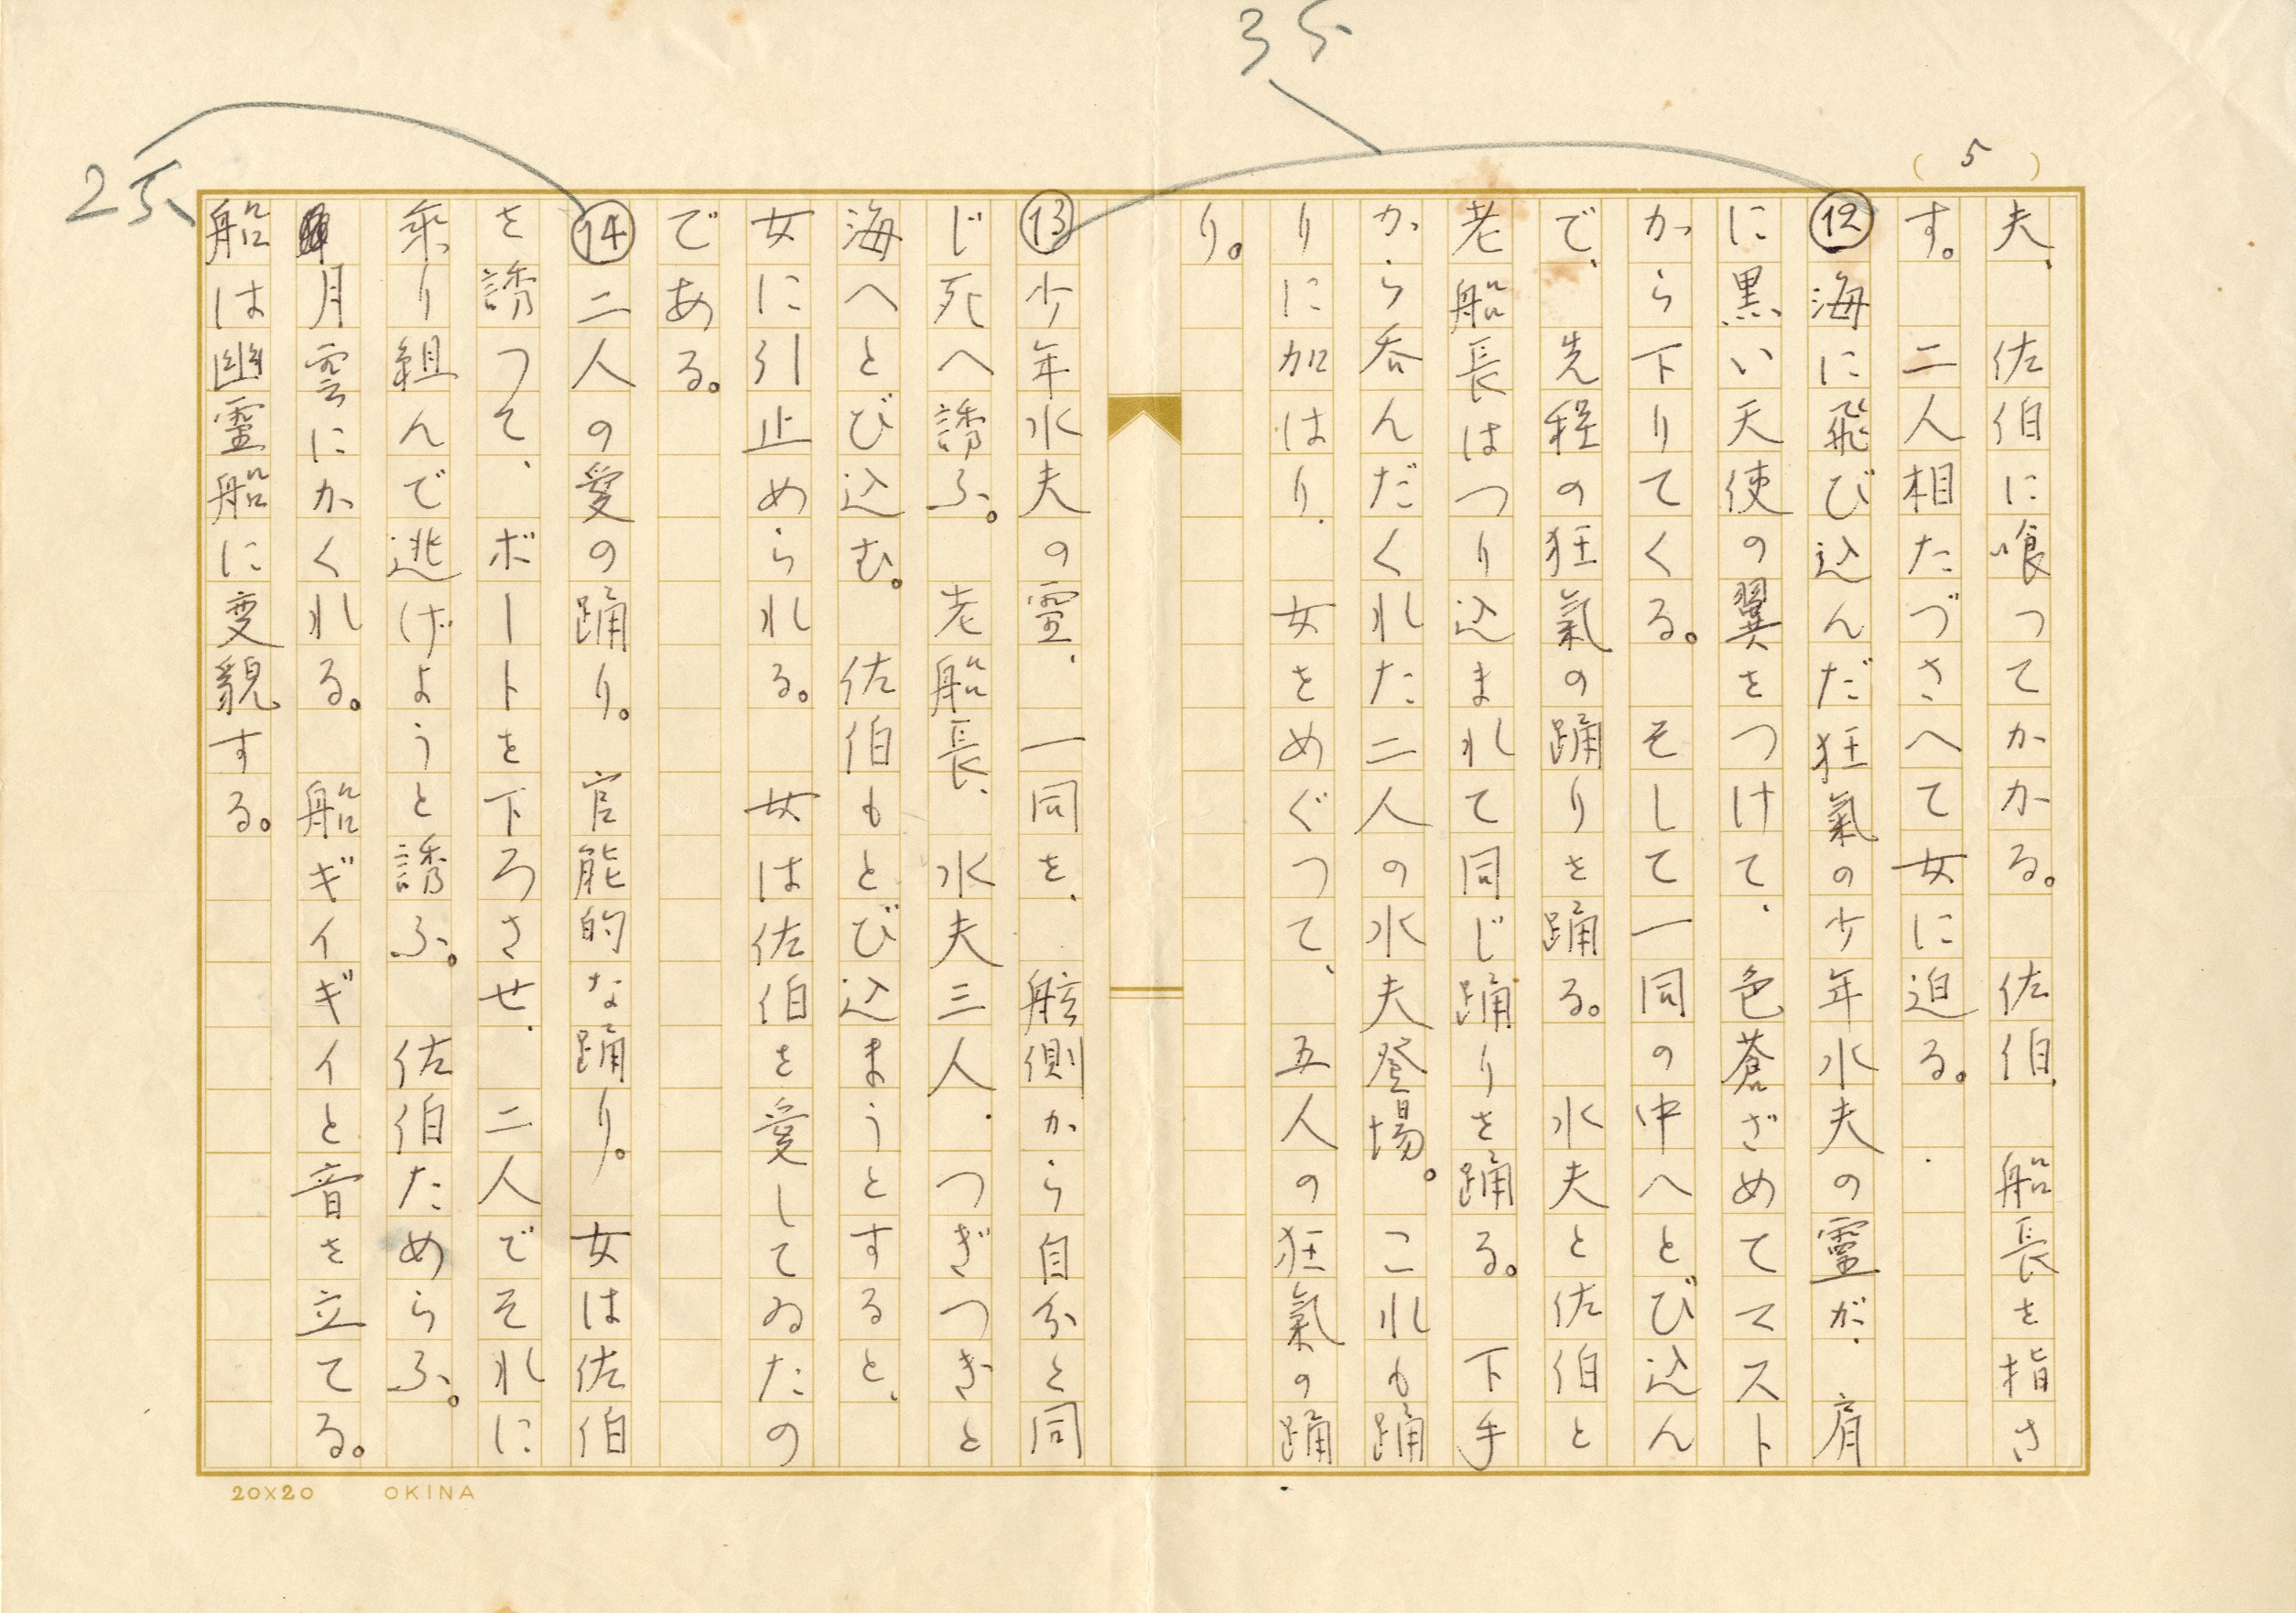 (5)
35
25
夫、佐伯に喰つてかかる。佐伯、船長を指さ
す。二人相たづさへて女に迫る。
⑫海に飛び込んだ狂氣の少年水夫の靈が、肩
に黒い天使の翼をつけて、色蒼ざめてマスト
から下りてくる。そして一同の中へとび込ん
で、先程の狂氣の踊りを踊る。水夫と佐伯と
老船長はつり込まれて同じ踊りを踊る。下手
から呑んだくれた二人の水夫登場。これも踊
りに加はり、女をめぐつて、五人の狂氣の踊
り。
⑬少年水夫の靈、一同を、舷側から自分と同
じ死へ誘ふ。老船長、水夫三人、つぎつぎと
海へとび込む。佐伯もとび込まうとすると、
女に引止められる。女は佐伯を愛してゐたの
である。
⑭二人の愛の踊り。官能的な踊り。女は佐伯
を誘つて、ボートを下ろさせ、二人でそれに
乘り組んで逃げようと誘ふ。佐伯ためらふ。
月雲にかくれる。船ギイギイと音を立てる。
船は幽靈船に変貌する。
20×20 OKINA